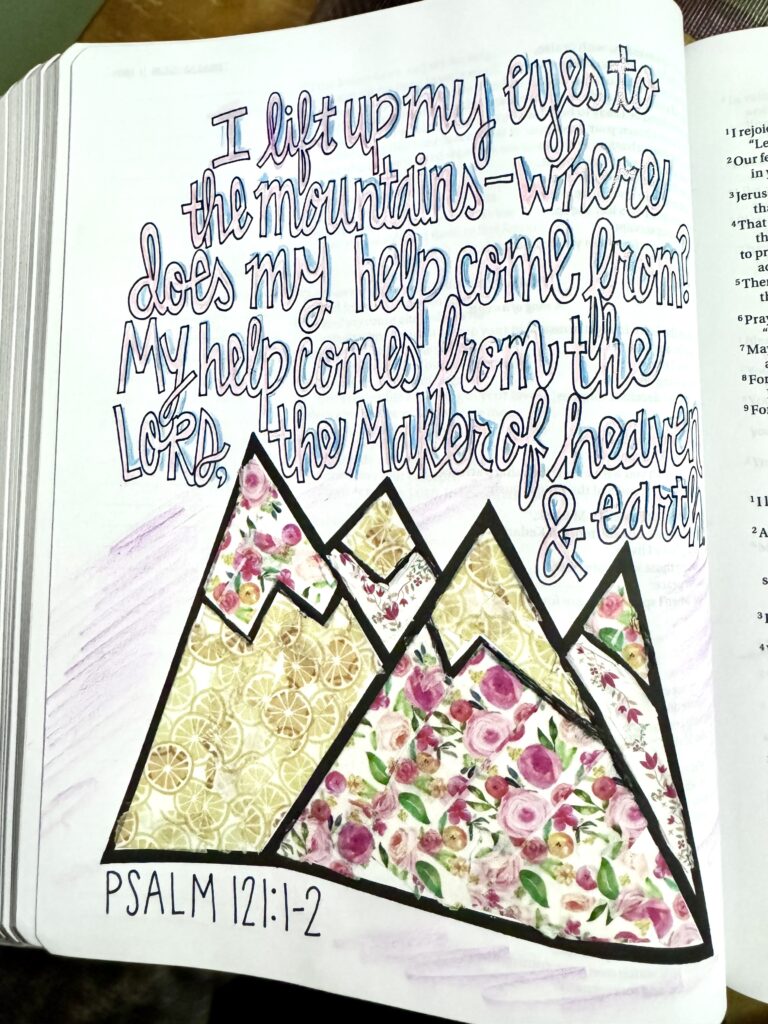 I lift up my eyes to
the mountains–where
does my help come from?
My help comes from the
LORD, the Maker of heaven
& earth.
PSALM 121:1-2
1 I rejoi
"Le
2 Our fe
in y
3 Jerus
tha
4 That
th
to pr
ac
5 Ther
th
6 Pray
7 Ma
8 For
9 For
1 I l
2 A
3
4